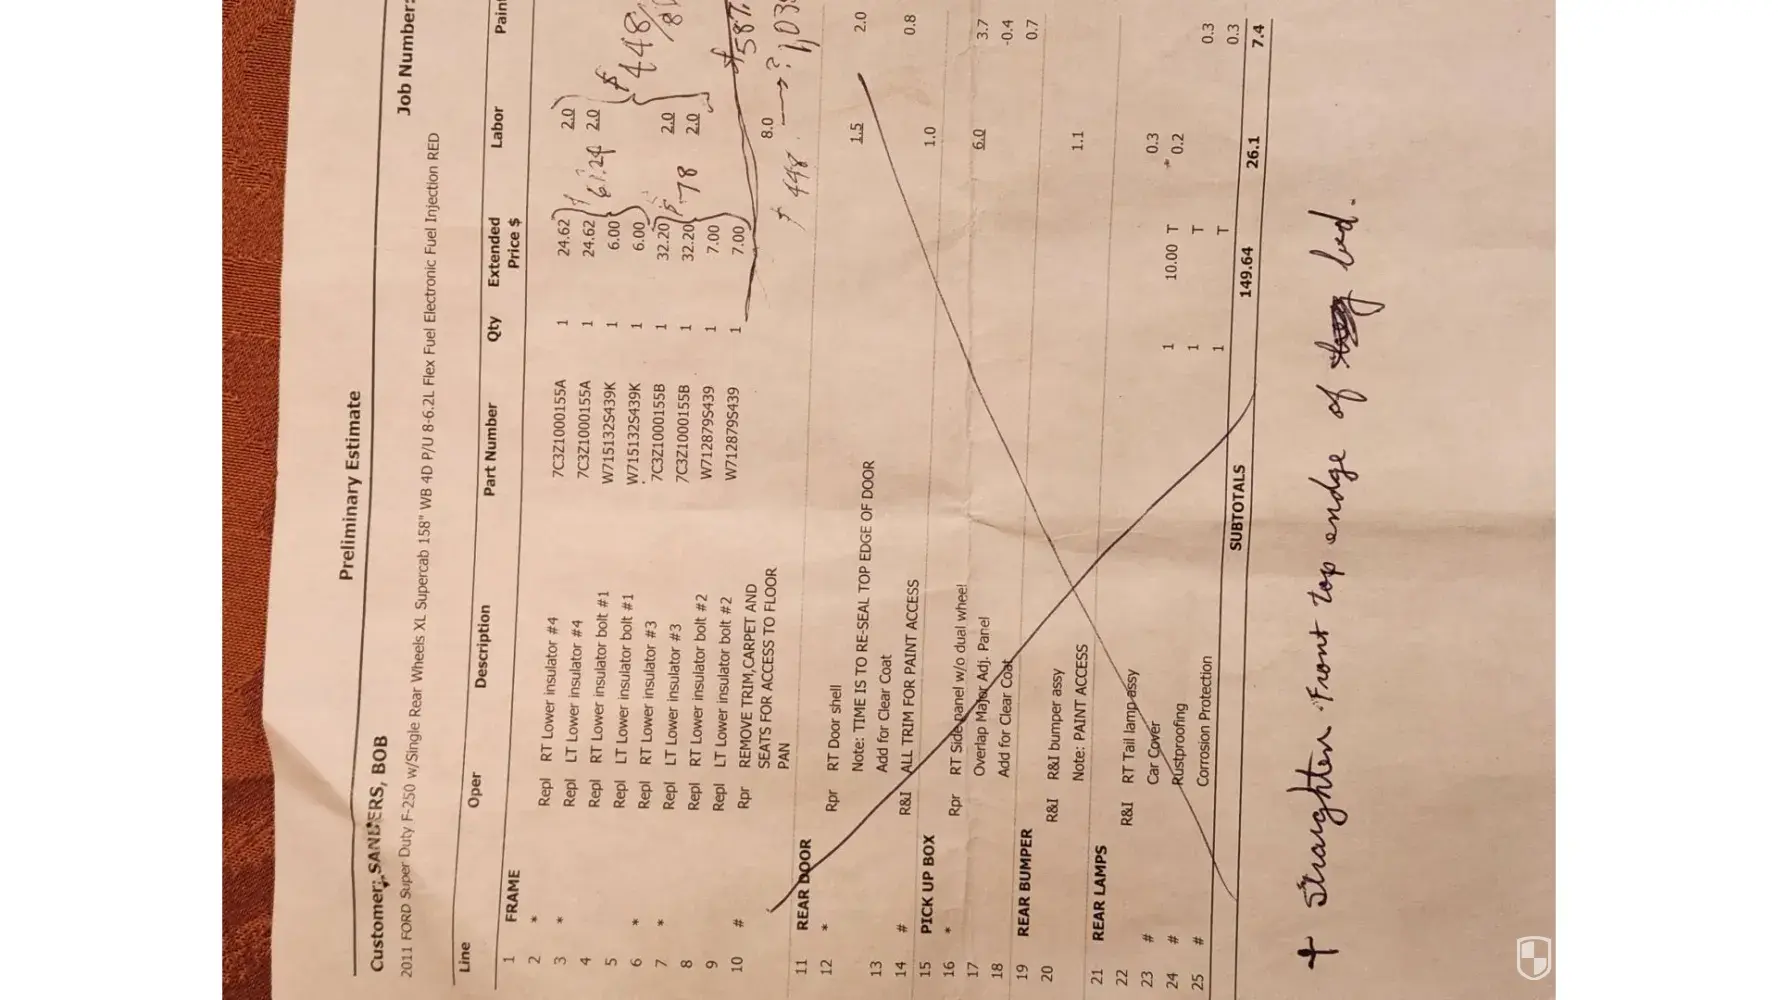 Preliminary Estimate
Customer: SANDERS, BOB
Job Number:
2011 FORD Super Duty F-250 w/Single Rear Wheels XL Supercab 158" WB 4D P/U 8-6.2L Flex Fuel Electronic Fuel Injection RED
Line Oper Description Part Number Qty Extended Price $ Labor Paint
1 FRAME
2 * Repl RT Lower insulator #4 7C3Z1000155A 1 24.62 2.0
3 * Repl LT Lower insulator #4 7C3Z1000155A 1 24.62 2.0
4 Repl RT Lower insulator bolt #1 W715132S439K 1 6.00
5 Repl LT Lower insulator bolt #1 W715132S439K 1 6.00
6 * Repl RT Lower insulator #3 7C3Z1000155B 1 32.20 2.0
7 * Repl LT Lower insulator #3 7C3Z1000155B 1 32.20 2.0
8 Repl RT Lower insulator bolt #2 W712879S439 1 7.00
9 Repl LT Lower insulator bolt #2 W712879S439 1 7.00
10 # Rpr REMOVE TRIM,CARPET AND 8.0
SEATS FOR ACCESS TO FLOOR
PAN
61.24
78
$ 448/
587
$ 448 → ?
11 REAR DOOR
12 * Rpr RT Door shell 1.5 2.0
Note: TIME IS TO RE-SEAL TOP EDGE OF DOOR
13 Add for Clear Coat 0.8
14 # R&I ALL TRIM FOR PAINT ACCESS 1.0
15 PICK UP BOX
16 * Rpr RT Side panel w/o dual wheel 6.0 3.7
17 Overlap Major Adj. Panel -0.4
18 Add for Clear Coat 0.7
19 REAR BUMPER
20 R&I R&I bumper assy 1.1
Note: PAINT ACCESS
21 REAR LAMPS
22 R&I RT Tail lamp assy 0.3
23 # Car Cover 1 10.00 T * 0.2
24 # Rustproofing 1 T 0.3
25 # Corrosion Protection 1 T 0.3
SUBTOTALS 149.64 26.1 7.4
+ Straighten Front top endge of bed.